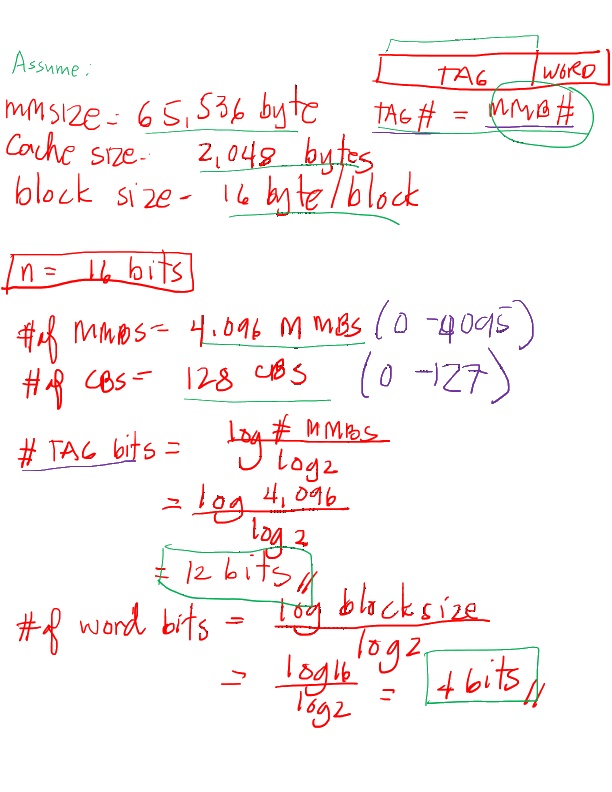 Assume:
TAG WORD
TAG# = MMB#
mmsize = 65,536 byte
Cache size - 2,048 bytes
block size - 16 byte/block
n = 16 bits
# of MMBS = 4,096 MMBS (0 - 4095)
# of CBS = 128 CBS (0 - 127)
# TAG bits = log # MMBs
log2
= log 4,096
log 2
= 12 bits //
# of word bits = log block size
log2
= log16 = 4 bits //
log2